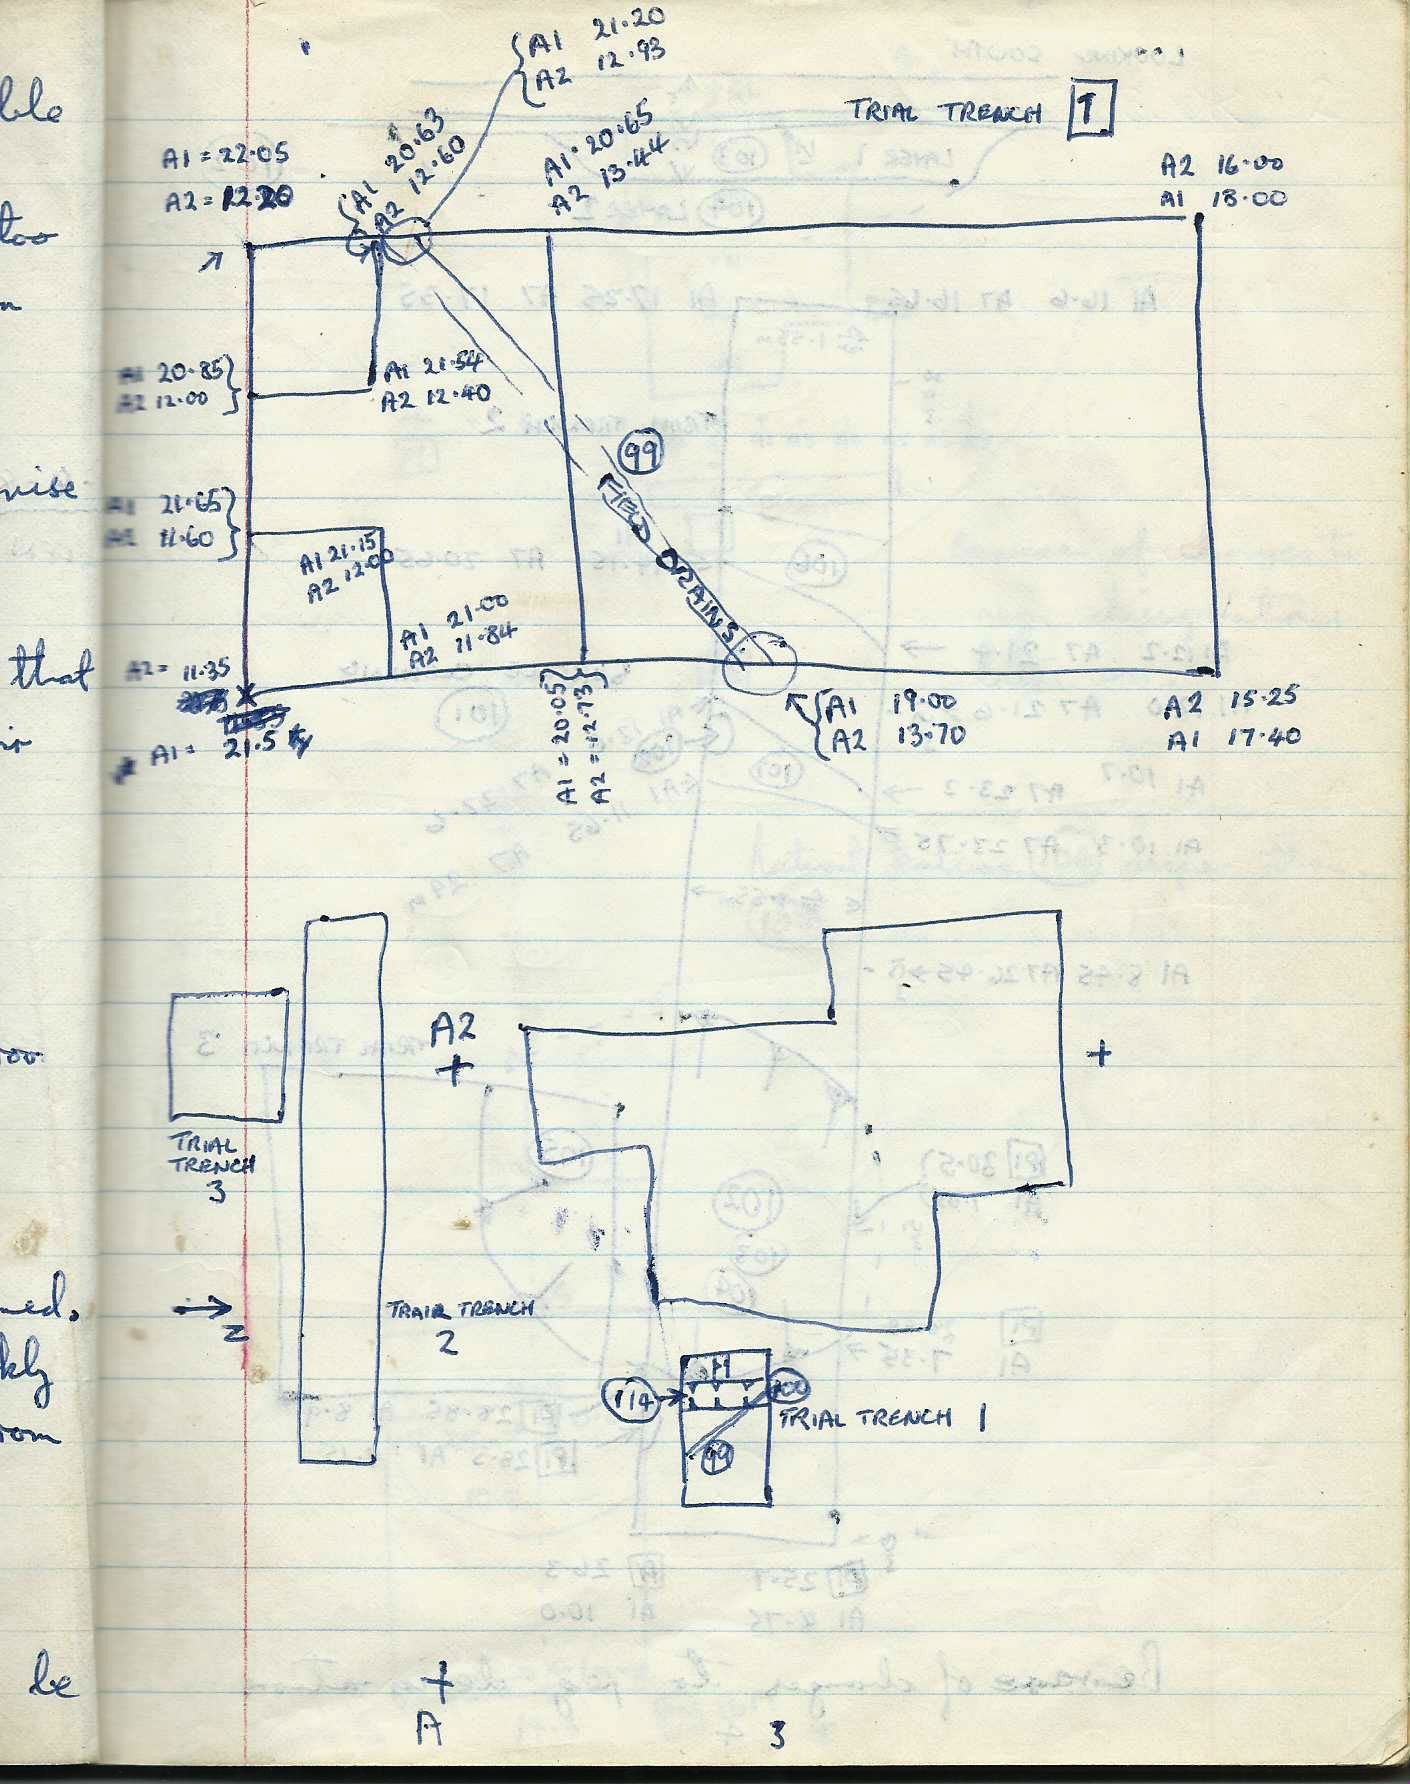 ble
too
n
wise
that
ir
oo
ned.
kly
rom
be
A1 21.20
A2 12.93
TRIAL TRENCH 1
A1 = 22.05
A2 = 12.20
A1 20.63
A2 12.60
A1. 20.65
A2 13.44
A2 16.00
A1 18.00
A1 20.85
A2 12.00
A1 21.54
A2 12.40
99
FIELD DRAINS
A1 21.65
A2 11.60
A1 21.15
A2 12.00
A1 21.00
A2 11.84
A2 = 11.35
A1 = 21.5
A1 = 20.05
A2 = 12.73
A1 19.00
A2 13.70
A2 15.25
A1 17.40
A2
TRIAL
TRENCH
3
Z
TRAIL TRENCH
2
114
100
TRIAL TRENCH 1
99
A
3